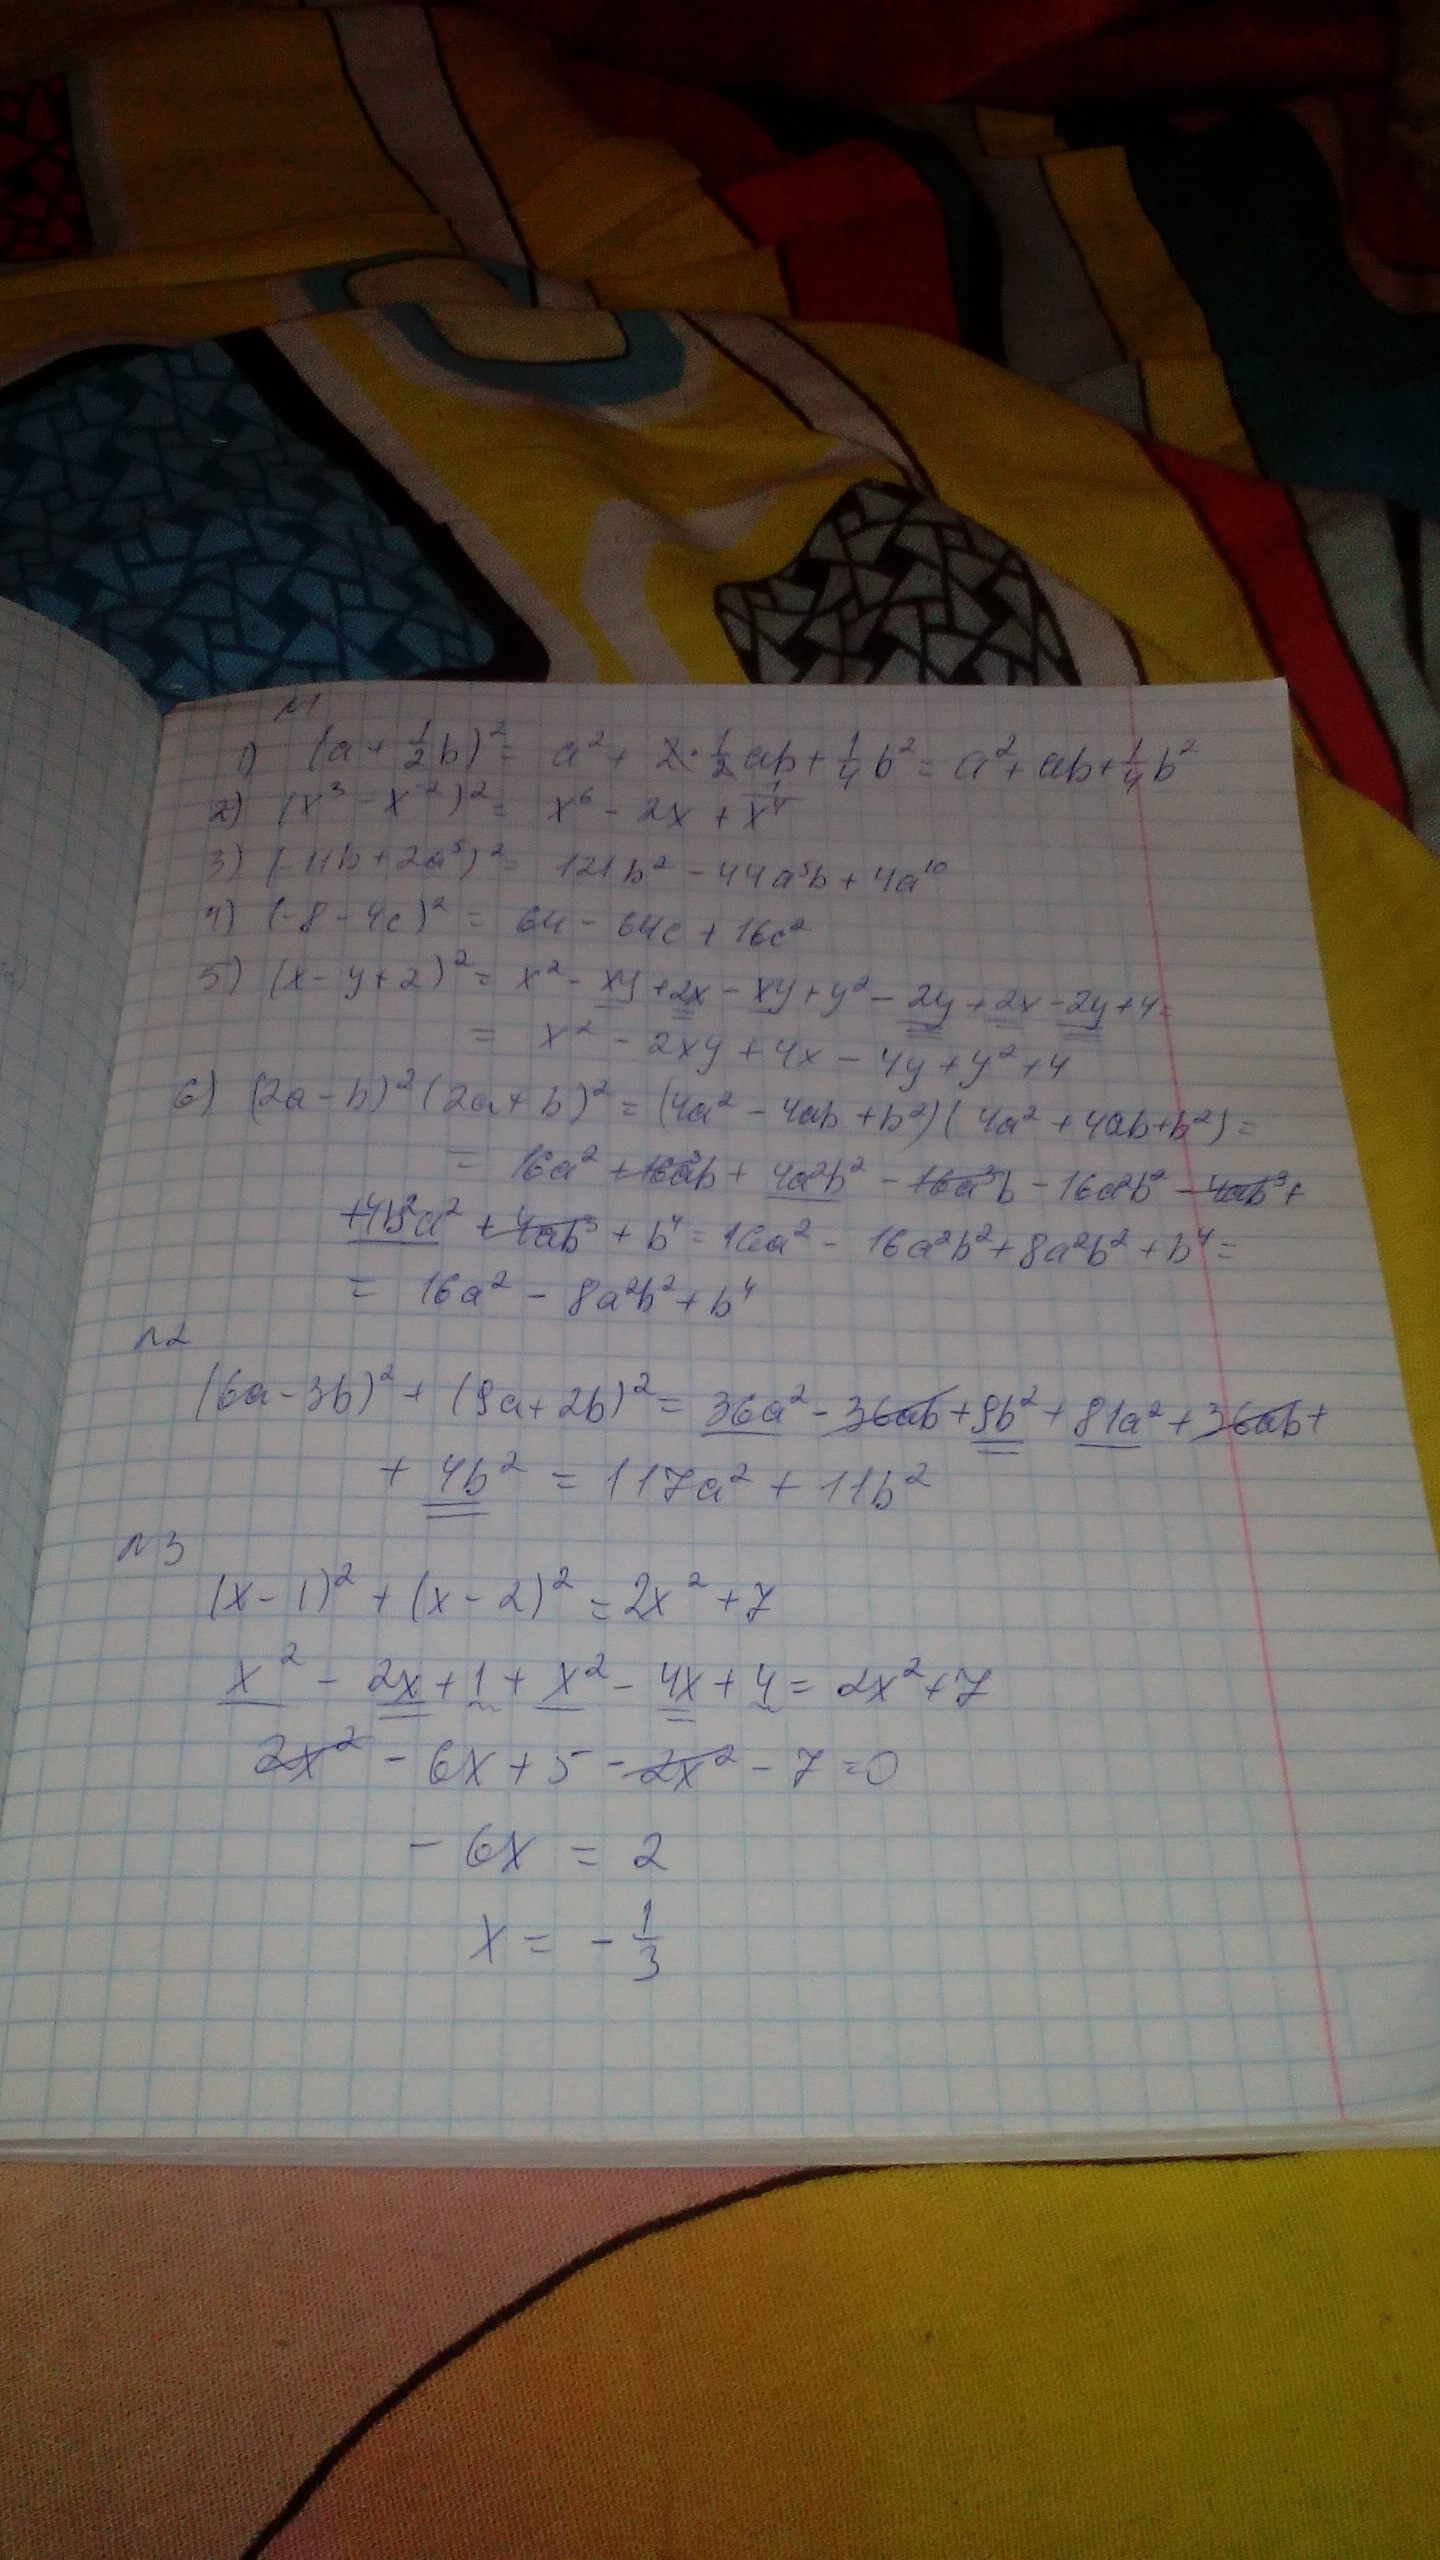 №1
1) (a + 1/2 b)² = a² + 2 · 1/2 ab + 1/4 b² = a² + ab + 1/4 b²
2) (x³ - x⁻²)² = x⁶ - 2x + 1/x⁴
3) (-11b + 2a⁵)² = 121b² - 44a⁵b + 4a¹⁰
4) (-8 - 4c)² = 64 - 64c + 16c²
5) (x - y + 2)² = x² - xy + 2x - xy + y² - 2y + 2x - 2y + 4 =
= x² - 2xy + 4x - 4y + y² + 4
6) (2a - b)² (2a + b)² = (4a² - 4ab + b²)(4a² + 4ab + b²) =
= 16a² + 16a³b + 4a²b² - 16a³b - 16a²b² - 4ab³ +
+ 4b²a² + 4ab³ + b⁴ = 16a² - 16a²b² + 8a²b² + b⁴ =
= 16a² - 8a²b² + b⁴
№2
(6a - 3b)² + (9a + 2b)² = 36a² - 36ab + 9b² + 81a² + 36ab +
+ 4b² = 117a² + 11b²
№3
(x - 1)² + (x - 2)² = 2x² + 7
x² - 2x + 1 + x² - 4x + 4 = 2x² + 7
2x² - 6x + 5 - 2x² - 7 = 0
- 6x = 2
x = - 1/3